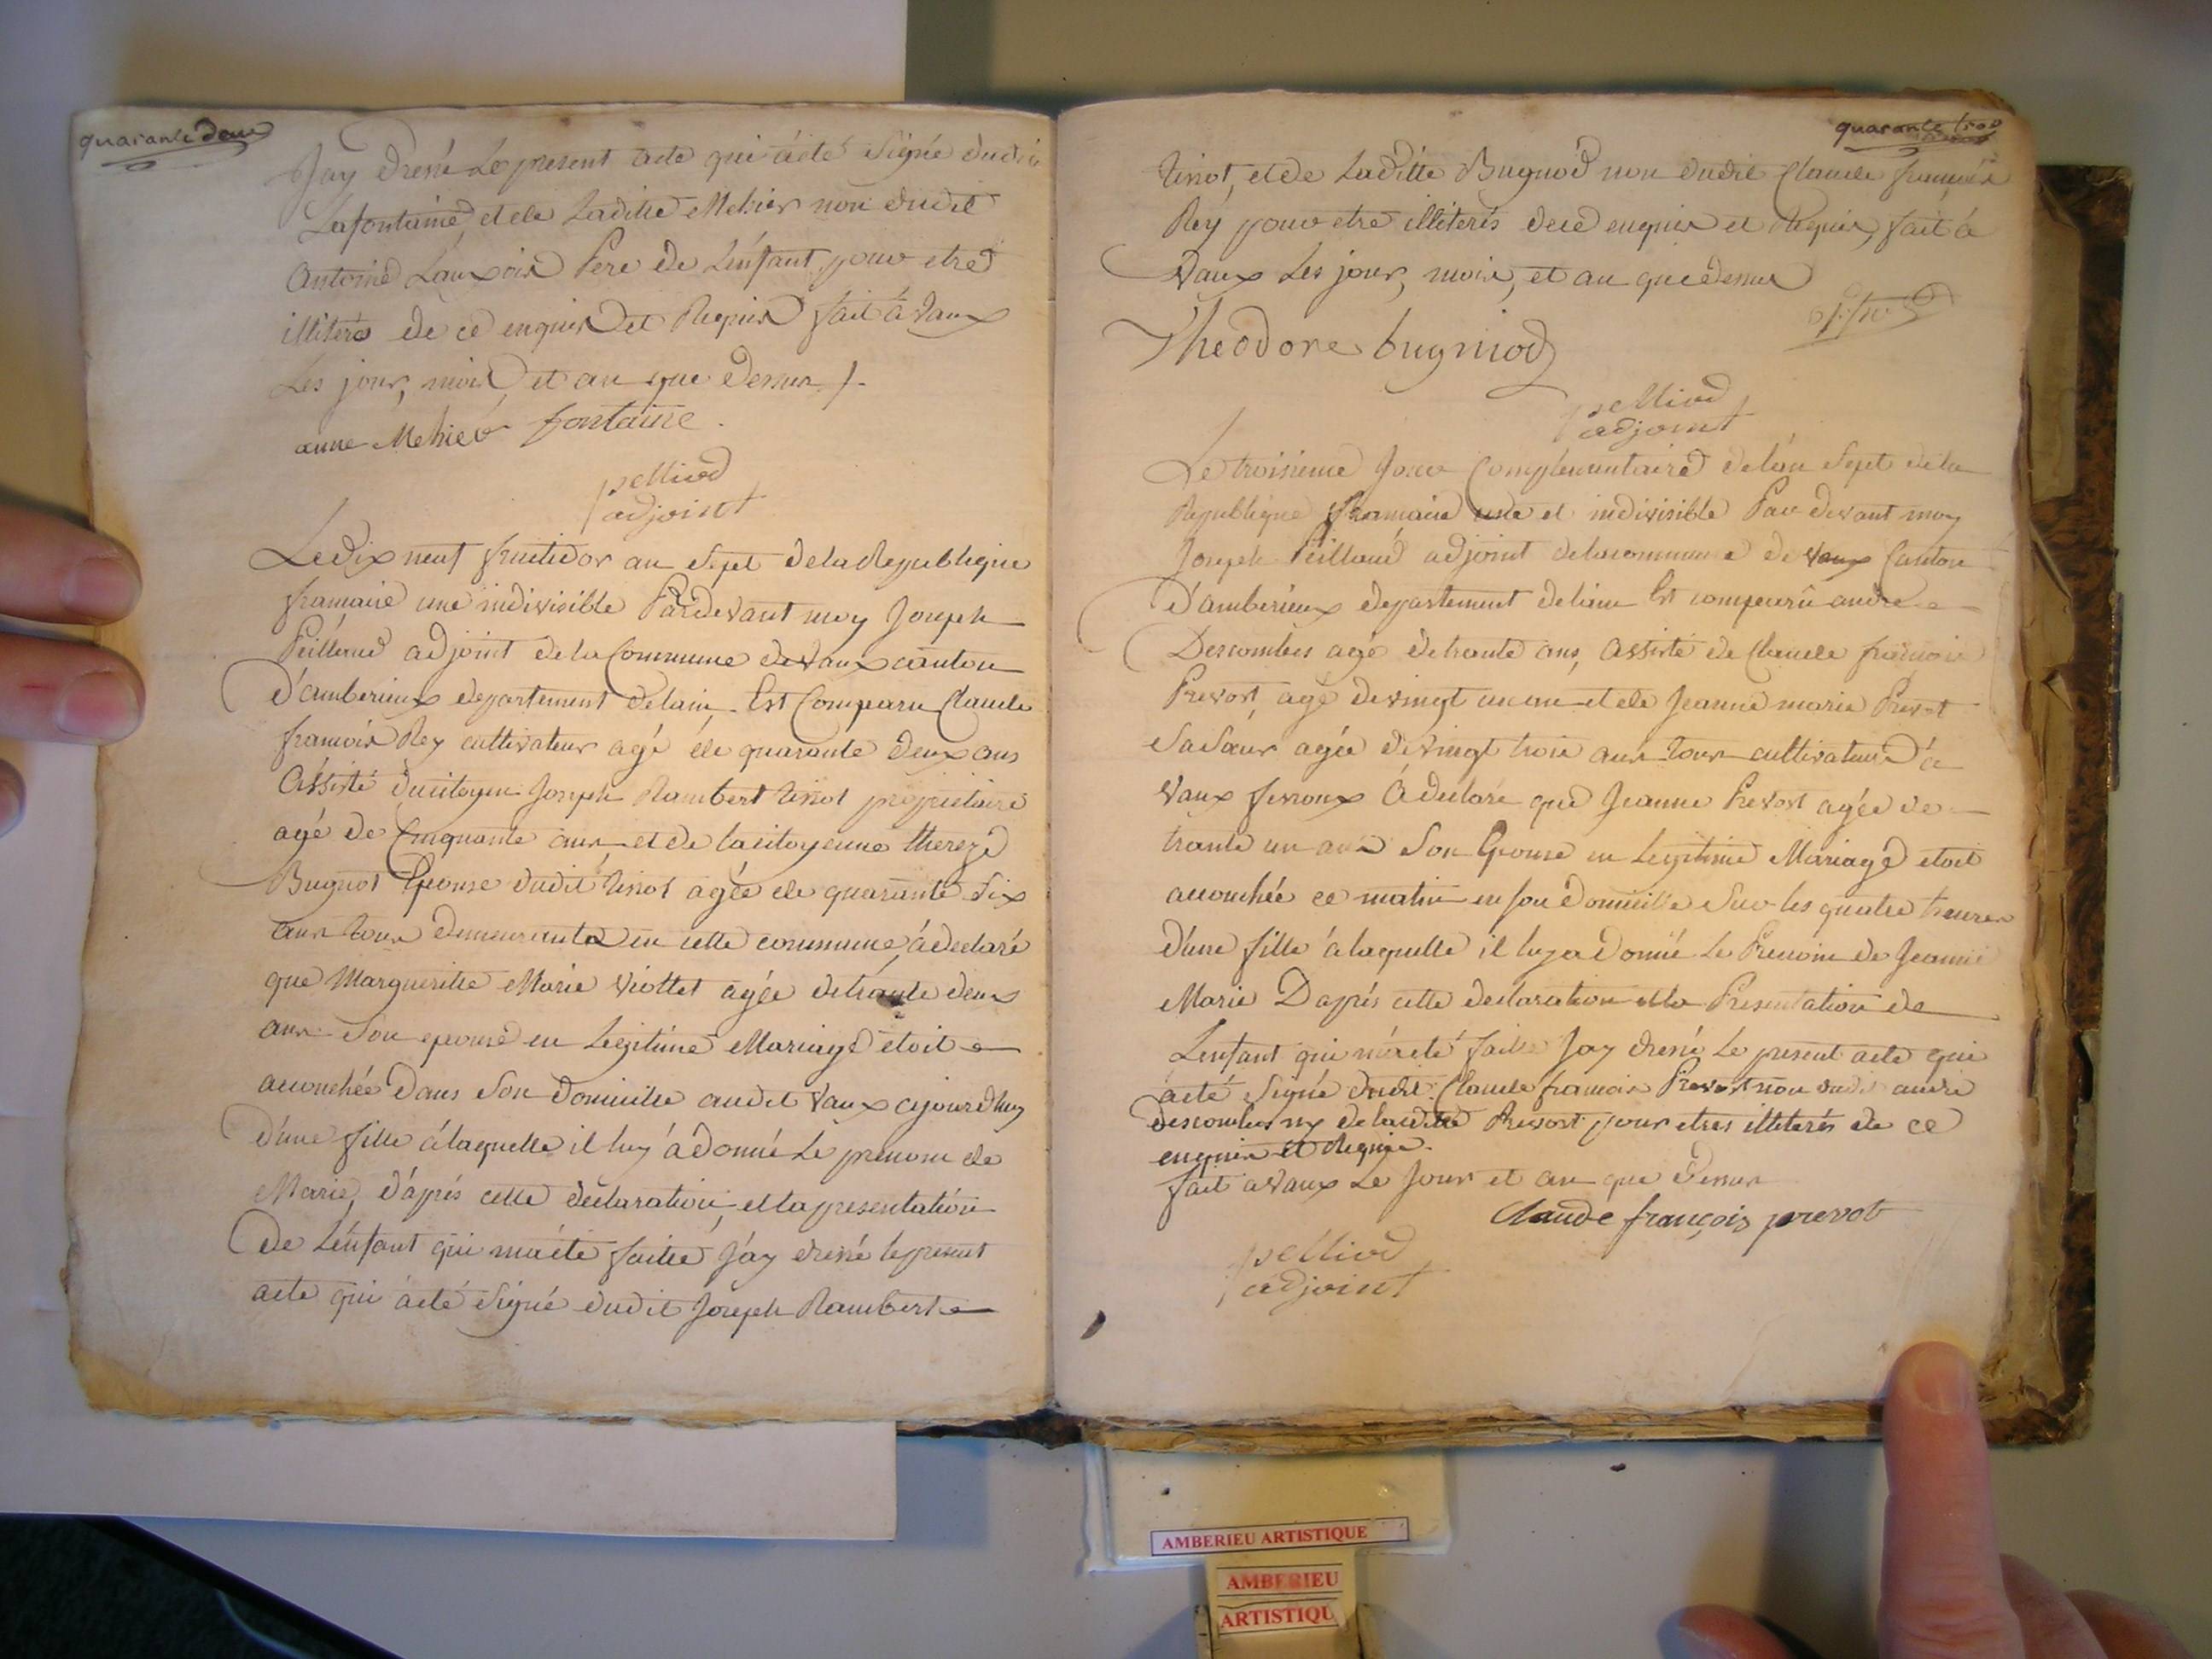 quarante deux
Jay dressé Le present acte qui áété Signé dudit
Lafontaine, et de Laditte Mehier non dudit
Antoine Lauxois Pere de L'énfant pour etre
illiteré de ce enquis et Requis fait á Vaux
Les jour, mois, et an que dessus /.
anne Mehier fontaine
pelliod
adjoint
Le dix neuf fructidor an Sept de la Republique
francaise une indivisible Pardevant moy Joseph
Peilloud adjoint de la Commune de Vaux canton
D'amberieux departement de lain Est Comparu Claude
francois Rey cultivateur agé de quarante deux ans
Assisté du citoyen Joseph Rambert tissot propriétaire
agé de Cinquante ans, et de la citoyenne thereze
Bugnot Epouse dudit tissot agée de quarante Six
ans tous demeurants en cette commune, á déclaré
que Margueritte Marie Viottet agée de trante deux
ans Son epouse en Legitime Mariage étoit
accouchée Dans Son Domicille audit Vaux cejourdhuy
D'une fille á laquelle il luy á donné Le prenom de
Marie, d'aprés cette declaration, et la presentation
de L'énfant qui ma été faitte J'ay dressé le present
acte qui áeté Signé dudit Joseph Rambert
quarante trois
tissot, et de Laditte Bugnod non dudit Claude francois
Rey pour etre illiterés de ce enquis et Requis, fait á
Vaux Les jour, mois, et an que dessus
Theodore bugniod
pelliod
adjoint
Le troisieme Jour Complementaire de l'an Sept de la
Republique francaise une et indivisible Par devant moy
Joseph Peilloud adjoint de la commune de Vaux Canton
D'amberieux departement de lain Est comparû andre
Descombes agé de trante ans, Assisté de Claude francois
Prevost agé de vingt un an et de Jeanne marie Prevot
Sa Sœur agée de vingt trois ans tous cultivateurs á
Vaux fevroux Á declaré que Jeanne Prevost agée de
trante un ans Son Epouse en Legitime Mariage étoit
accouchée ce matin en son Domicille Sur les quatre heures
d'une fille á laquelle il luy a Donné Le Prenom de Jeanne
Marie D'aprés cette declaration et la Presentation de
L'enfant qui m'a eté faitte J'ay dressé Le present acte qui
áeté Signé dudit Claude francois Prevost non dudit andré
descombes ny de laditte Prevost pour etres illiterés de ce
enquis et Requis.
fait a Vaux Le Jour et an que Dessus
Claude françois prevot
pelliod
adjoint
AMBERIEU ARTISTIQUE
AMBERIEU
ARTISTIQU